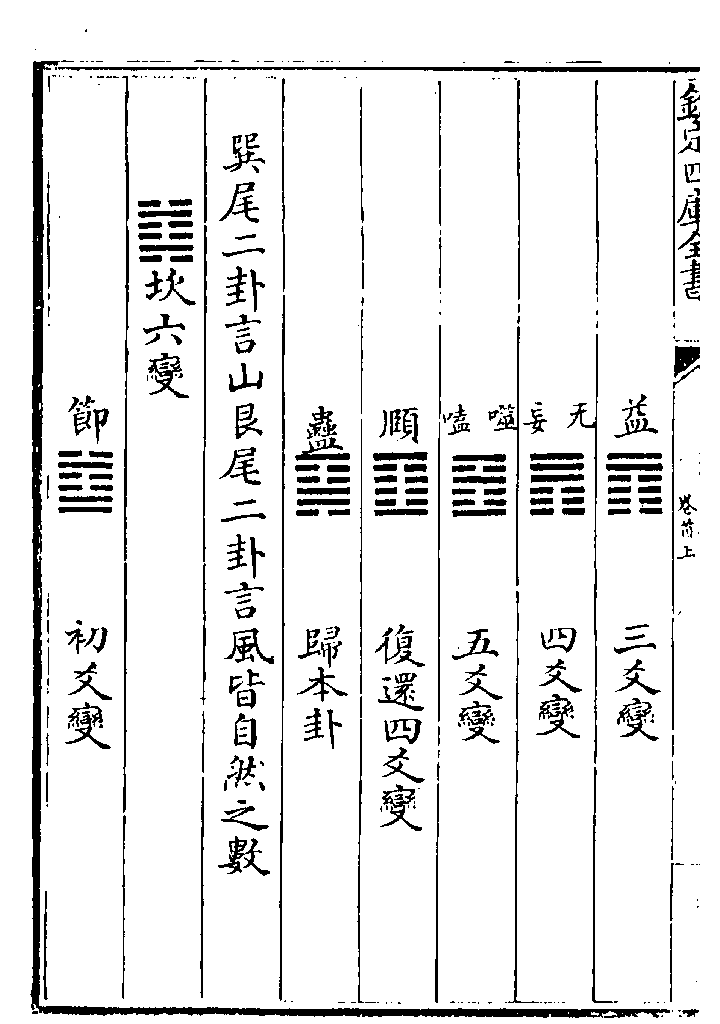 欽定四庫全書
卷首上
益䷩　三爻變
无妄䷘　四爻變
噬嗑䷔　五爻變
頤䷚　復還四爻變
蠱䷑　歸本卦
巽尾二卦言山艮尾二卦言風皆自然之數
䷜坎六變
節䷻　初爻變